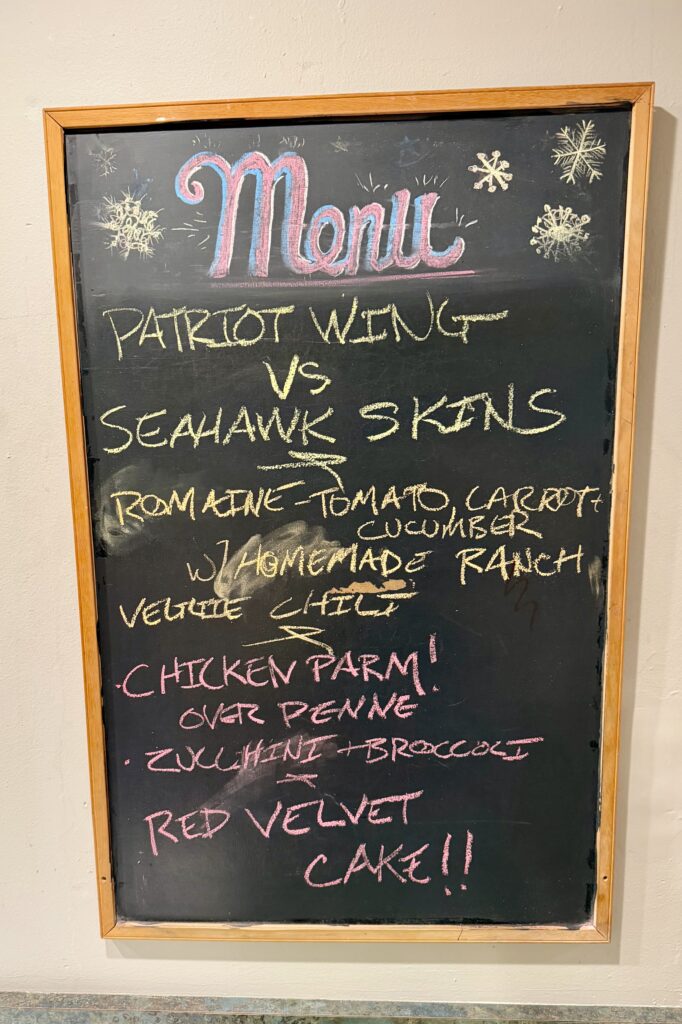 Menu
PATRIOT WING
VS
SEAHAWK SKINS
ROMAINE-TOMATO, CARROT+
CUCUMBER
w/ HOMEMADE RANCH
VEGGIE CHILI
· CHICKEN PARM!
OVER PENNE
· ZUCCHINI + BROCCOLI
RED VELVET
CAKE!!